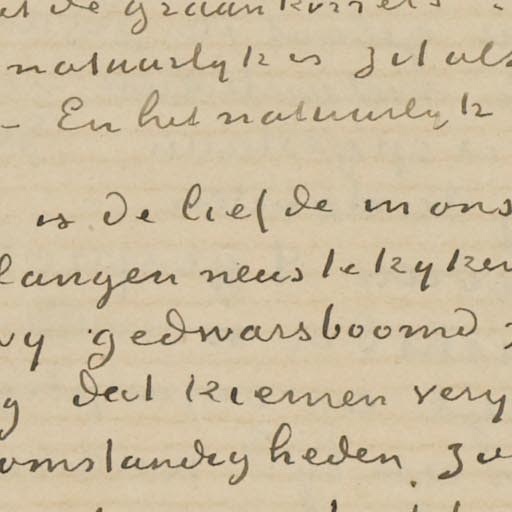 at de graankorrels
natuurlyk is zit als
– En het natuurlyk
is de liefde in ons
langen neus te kyken
wy gedwarsboomd
dat kiemen very
omstandigheden zy